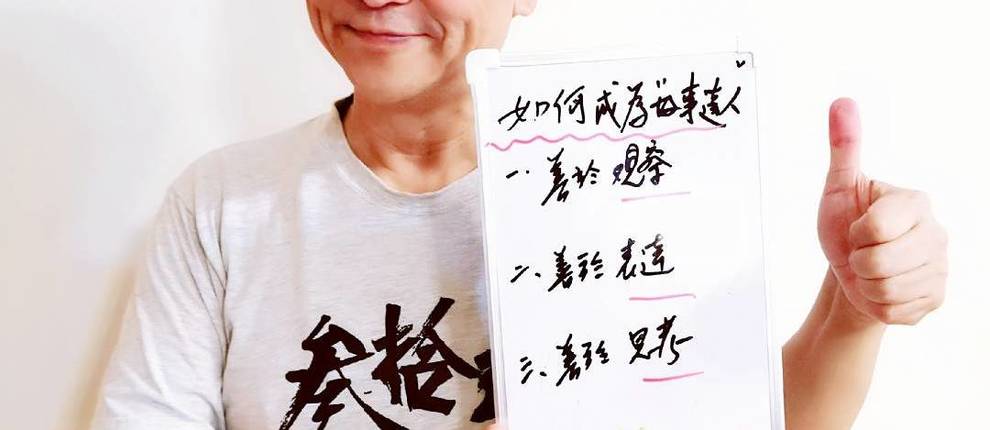 如何成為故事達人
一、善於觀察
二、善於表達
三、善於思考
叁拾